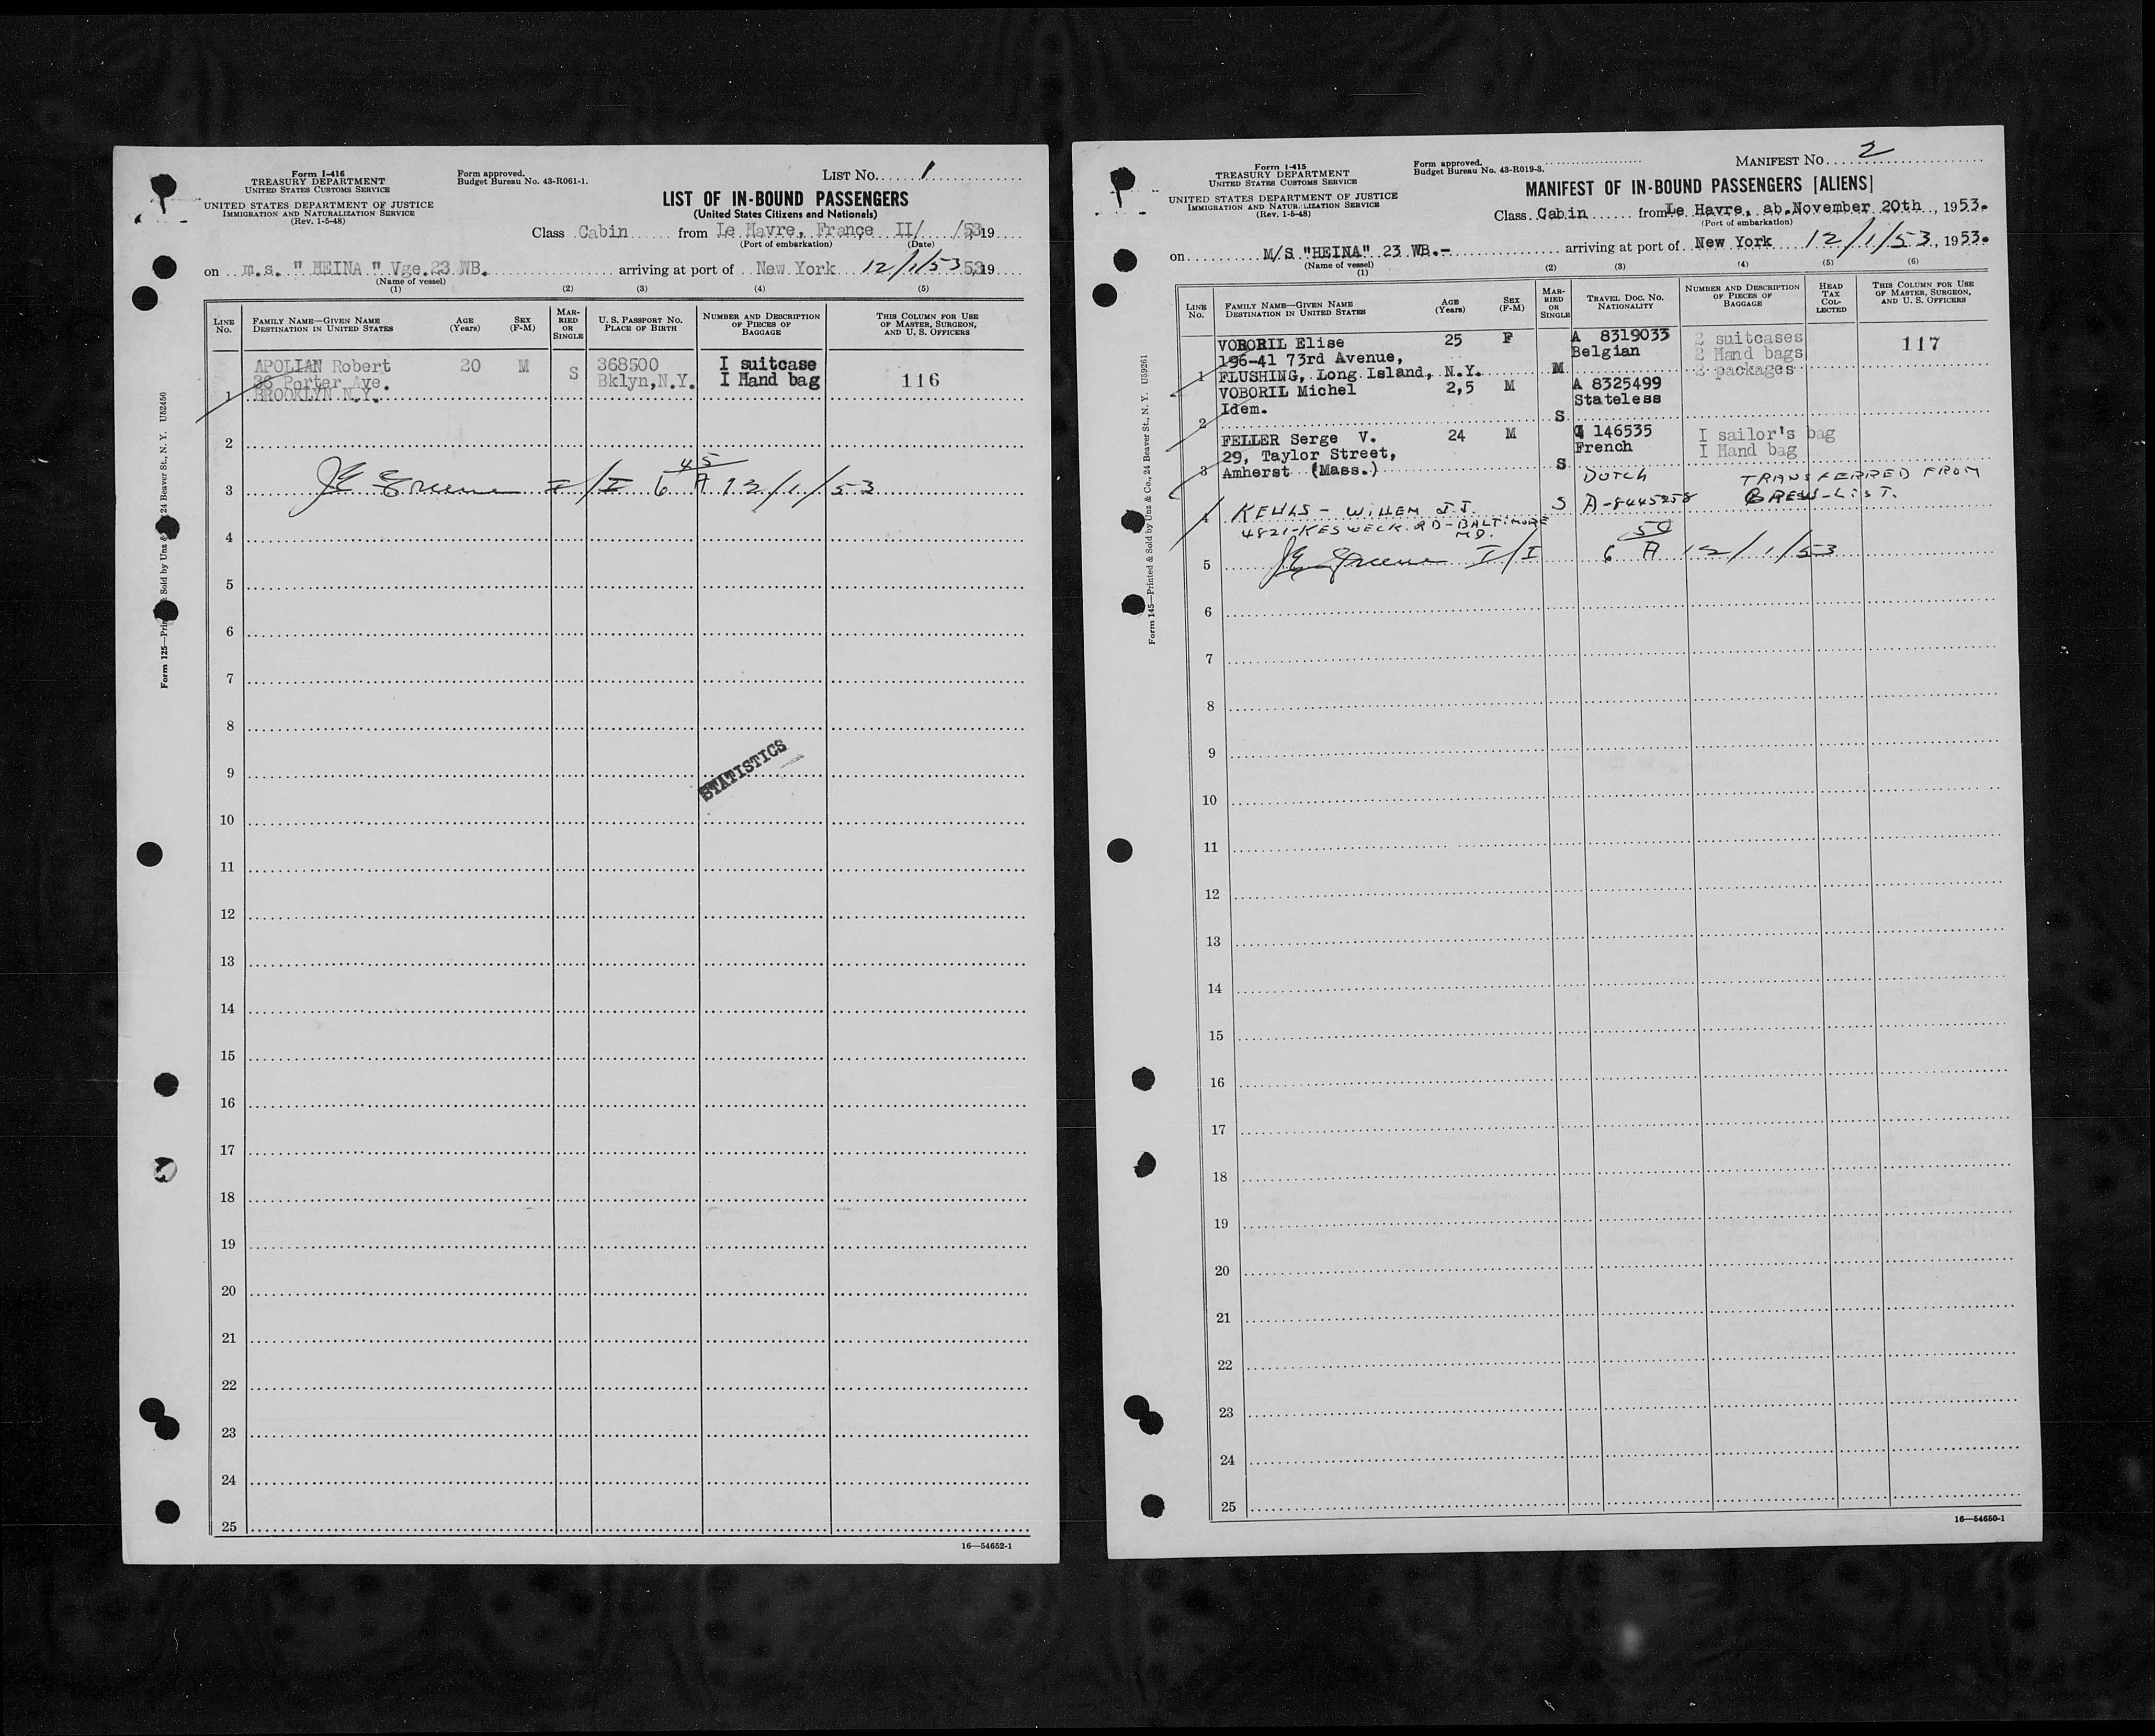 Form I-416
TREASURY DEPARTMENT
UNITED STATES CUSTOMS SERVICE
UNITED STATES DEPARTMENT OF JUSTICE
IMMIGRATION AND NATURALIZATION SERVICE
(Rev. 1-5-48)
Form approved.
Budget Bureau No. 43-R061-1.
LIST No. 1
LIST OF IN-BOUND PASSENGERS
(United States Citizens and Nationals)
Class Cabin from Le Havre, France II/ /53 19
(Port of embarkation) (Date)
on m.s. " HEINA " Vge.23 WB. arriving at port of New York 12/1/53 53 19
(Name of vessel)
(1) (2) (3) (4) (5)
LINE No. FAMILY NAME—GIVEN NAME DESTINATION IN UNITED STATES AGE (Years) SEX (F-M) MARRIED OR SINGLE U. S. PASSPORT NO. PLACE OF BIRTH NUMBER AND DESCRIPTION OF PIECES OF BAGGAGE THIS COLUMN FOR USE OF MASTER, SURGEON, AND U. S. OFFICERS
APOLIAN Robert 20 M S 368500 I suitcase
36 Porter Ave. Bklyn, N.Y. I Hand bag 116
1 BROOKLYN N.Y.
2
45
3 JE Greene I/I 6 A 12/1/53
4
5
6
7
8
STATISTICS
9
10
11
12
13
14
15
16
17
18
19
20
21
22
23
24
25
16—54652-1
Form 125—Printed & Sold by Unz & Co., 24 Beaver St., N. Y. U52450
Form I-415
TREASURY DEPARTMENT
UNITED STATES CUSTOMS SERVICE
UNITED STATES DEPARTMENT OF JUSTICE
IMMIGRATION AND NATURALIZATION SERVICE
(Rev. 1-5-48)
Form approved.
Budget Bureau No. 43-R019-3.
MANIFEST No. 2
MANIFEST OF IN-BOUND PASSENGERS [ALIENS]
Class Cabin from Le Havre, ab. November 20th, 1953.
(Port of embarkation)
on M/S "HEINA" 23 WB.- arriving at port of New York 12/1/53, 1953.
(Name of vessel)
(1) (2) (3) (4) (5) (6)
LINE No. FAMILY NAME—GIVEN NAME DESTINATION IN UNITED STATES AGE (Years) SEX (F-M) MARRIED OR SINGLE TRAVEL DOC. NO. NATIONALITY NUMBER AND DESCRIPTION OF PIECES OF BAGGAGE HEAD TAX COLLECTED THIS COLUMN FOR USE OF MASTER, SURGEON, AND U. S. OFFICERS
VOBORIL Elise 25 F A 8319033 2 suitcases 117
196-41 73rd Avenue, Belgian 2 Hand bags
1 FLUSHING, Long Island, N.Y. M 2 packages
VOBORIL Michel 2,5 M A 8325499
Idem. Stateless
2 S
FELLER Serge V. 24 M 146535 I sailor's bag
29, Taylor Street, French I Hand bag
3 Amherst (Mass.) S
DUTCH TRANSFERRED FROM
4 WILLEM J.J. S A-8445258 CREW-LIST.
4821-KESWECK RD-BALTIMORE
MD.
5 JE Greene I/I 6 A 12/1/53
6
7
8
9
10
11
12
13
14
15
16
17
18
19
20
21
22
23
24
25
16—54650-1
Form 145—Printed & Sold by Unz & Co., 24 Beaver St., N. Y. U59261